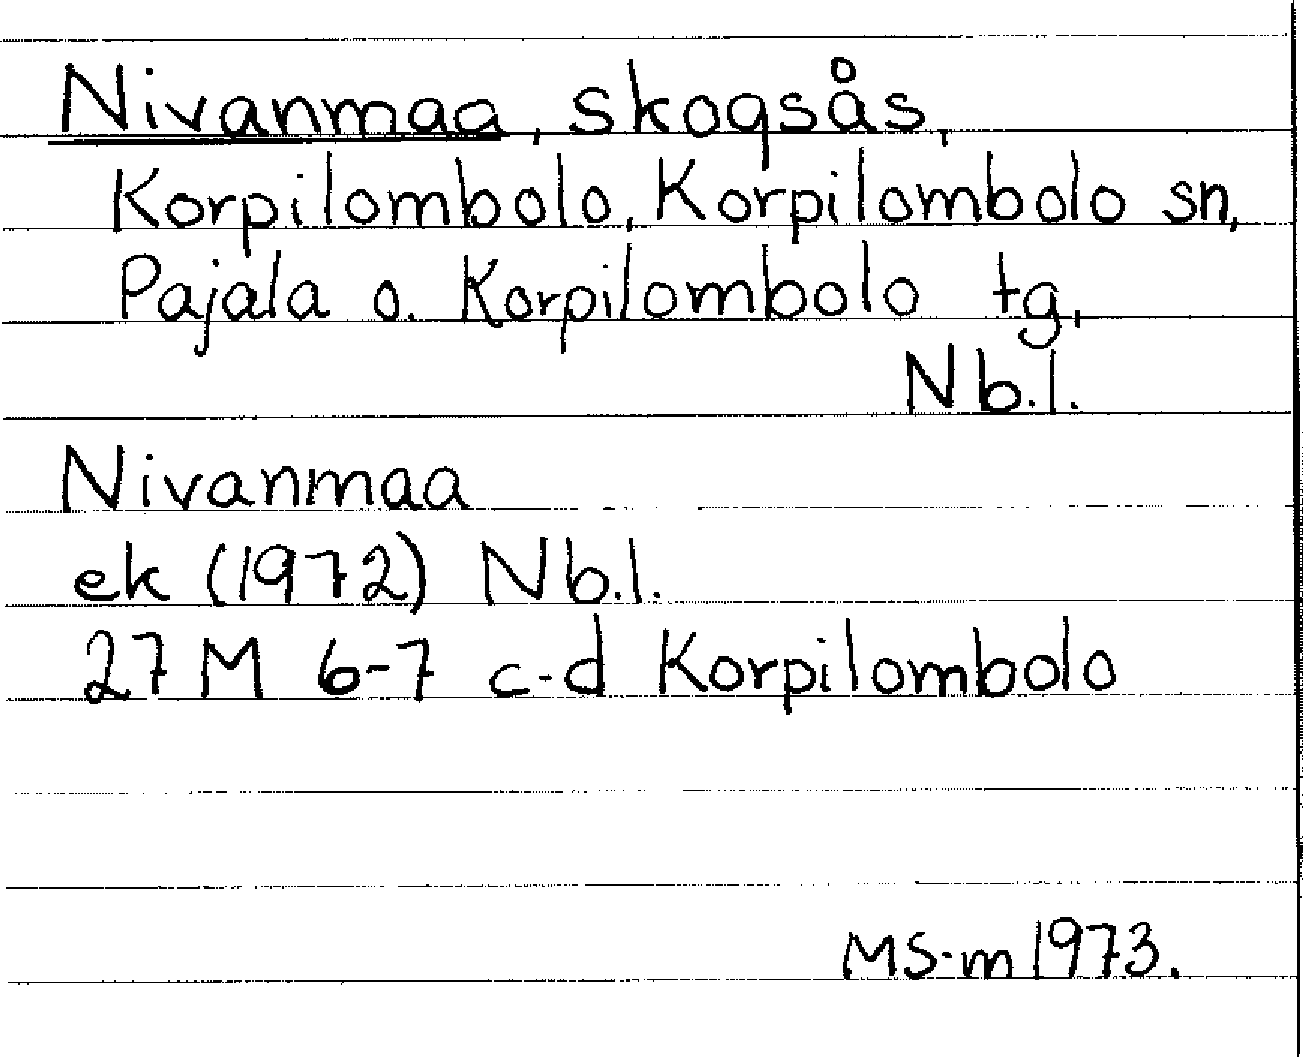 Nivanmaa, skogsås,
Korpilombolo, Korpilombolo sn,
Pajala o. Korpilombolo tg,
Nb.l.
Nivanmaa
ek (1972) Nb.l.
27 M 6-7 c-d Korpilombolo
MS-m 1973.